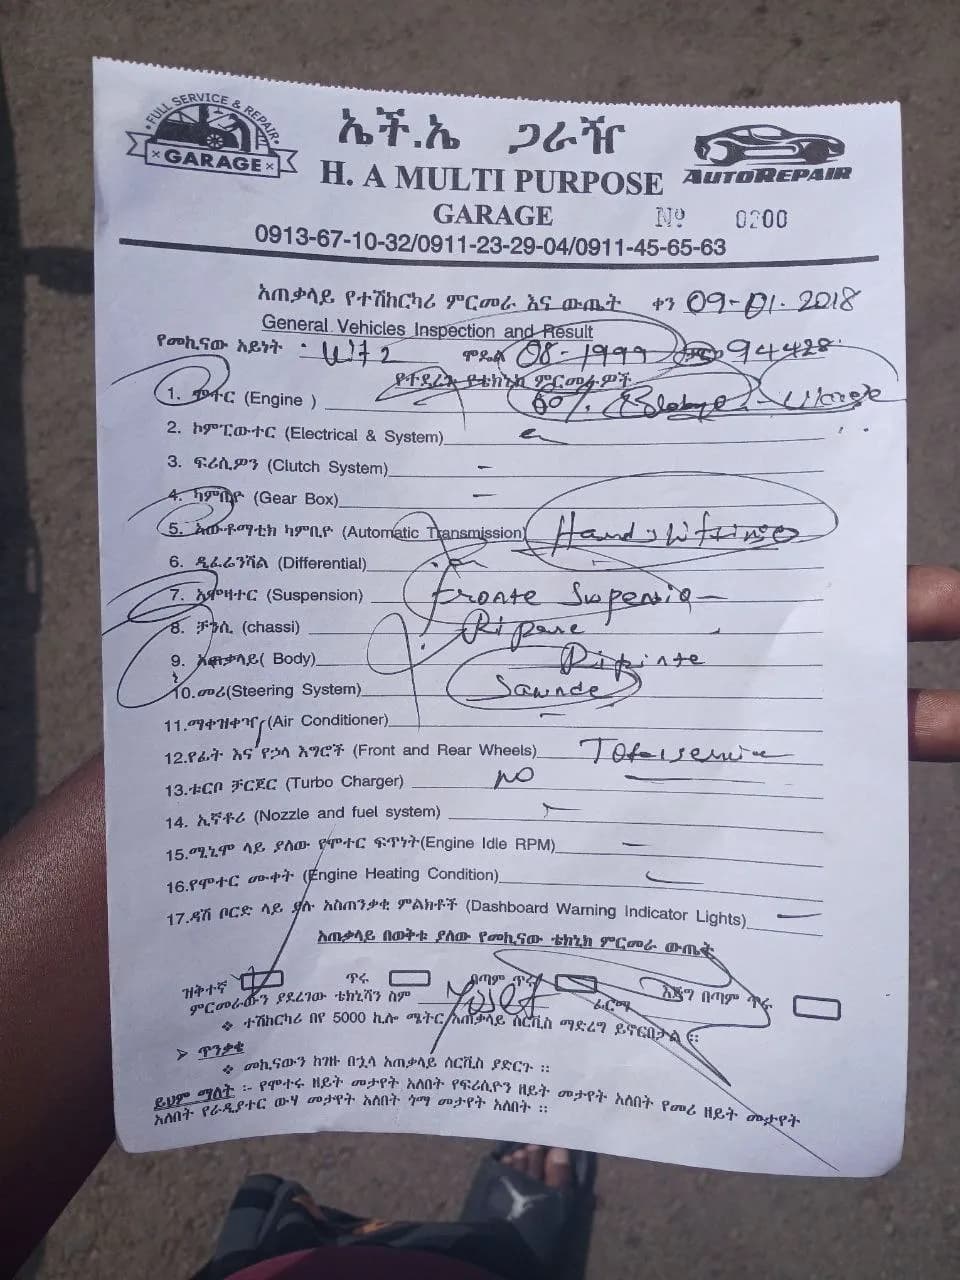 FULL SERVICE & REPAIR
GARAGE
ኤች.ኤ ጋራዥ
AUTOREPAIR
H. A MULTI PURPOSE
GARAGE
No 0200
0913-67-10-32/0911-23-29-04/0911-45-65-63
አጠቃላይ የተሽከርካሪ ምርመራ እና ውጤት ቀን 09-01-2018
General Vehicles Inspection and Result
የመኪናው አይነት ሞዴል 08-1999 94428
የተደረጉ የቴክኒክ ምርመራዎች
1. ሞተር (Engine ) 60%
2. ኮምፒውተር (Electrical & System)
3. ፍሪሲዎን (Clutch System) -
4. ካምቢዮ (Gear Box) -
5. አውቶማቲክ ካምቢዮ (Automatic Transmission)
6. ዲፈረንሻል (Differential)
7. አሞዛተር (Suspension) Fronte
8. ቻንሲ (chassi) Ripare
9. አጠቃላይ( Body)
10.መሪ(Steering System) Sawnde
11.ማቀዝቀዣ (Air Conditioner) -
12.የፊት እና የኃላ እግሮች (Front and Rear Wheels)
13.ቱርቦ ቻርጀር (Turbo Charger) NO
14. ኢኛቶሪ (Nozzle and fuel system)
15.ሚኒሞ ላይ ያለው የሞተር ፍጥነት(Engine Idle RPM) -
16.የሞተር ሙቀት (Engine Heating Condition)
17.ዳሽ ቦርድ ላይ ያሉ አስጠንቃቂ ምልክቶች (Dashboard Warning Indicator Lights) -
አጠቃላይ በወቅቱ ያለው የመኪናው ቴክኒክ ምርመራ ውጤት
ዝቅተኛ ጥሩ በጣም ጥሩ እጅግ በጣም ጥሩ
ምርመራውን ያደረገው ቴክኒሻን ስም ፊርማ
❖ ተሽከርካሪ በየ 5000 ኪሎ ሜትር አጠቃላይ ሰርቪስ ማድረግ ይኖርበታል ።
➤ ጥንቃቄ
❖ መኪናውን ከገዙ በኋላ አጠቃላይ ሰርቪስ ያድርጉ ።
ይህም ማለት :- የሞተሩ ዘይት መታየት አለበት የፍሪሲዮን ዘይት መታየት አለበት የመሪ ዘይት መታየት
አለበት የራዲያተር ውሃ መታየት አለበት ጎማ መታየት አለበት ።